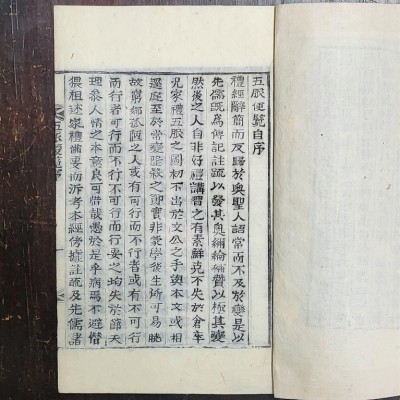 五服便覽自序
禮經辭簡而或歸於奧聖人語常而不及於變是以
先儒爲傳記註疏以發其奧彌綸補費以極其變
然後之人自非好禮講習之有素鮮克不失於倉卒
況家禮五服之圖初不出於文公之手與本文或相
逕庭至於常變隆殺之節實非蒙學後生所可易曉
故窮鄕孤陋之人或有可行而不行者或有不可行
而行者可行而不行不可行而行要之均失於節天
理叅人情之本意良可慨哉愚於是乎病焉不避僭
猥粗述家禮備要而泝考本經傍據註疏及先儒諸
五服便覽序